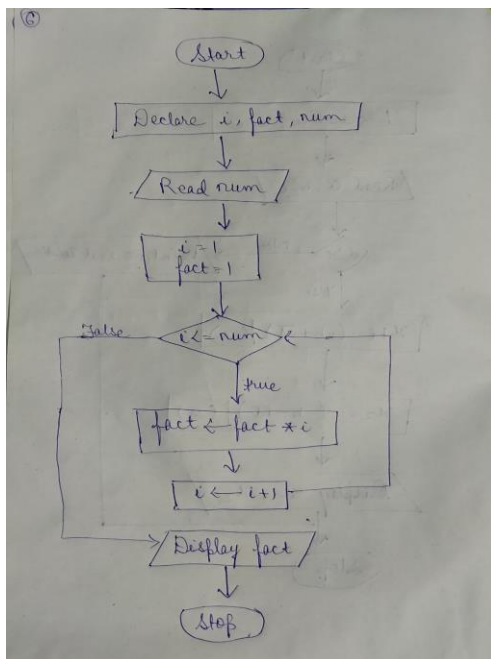 6
Start
Declare i, fact, num
Read num
i=1
fact=1
i<=num
False
true
fact ← fact * i
i ← i+1
Display fact
Stop